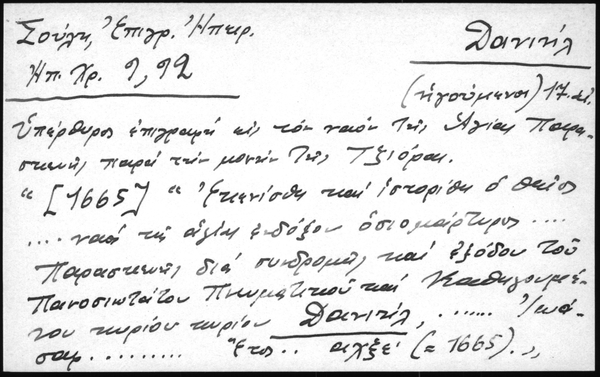 Σούλη, Ἐπιγρ. Ἠπειρ.
Δανιήλ
Ἠπ. Χρ. 9, 92
(ἡγούμενος) 17. αἰ.
Ὑπέρθυρος ἐπιγραφή εἰς τόν ναόν τῆς Ἁγίας Παρα-
σκευῆς παρά τήν μονήν τῆς Τζιόρας.
"[1665] " Ἐκενίσθη καί ἱστορίθη ὁ θεῖος
.... ναός τῆς ἁγίας ἐνδόξου ὁσιομάρτυρος ....
Παρασκευῆς διά συνδρομῆς καί ἐξόδου τοῦ
Πανοσιωτάτου Πνευματικοῦ καί Καθηγουμέ-
νου κυρίου κυρίου Δανιήλ, ...... Ἰωά-
σαφ ......... Ἔτος .. αχξέ (= 1665)..,